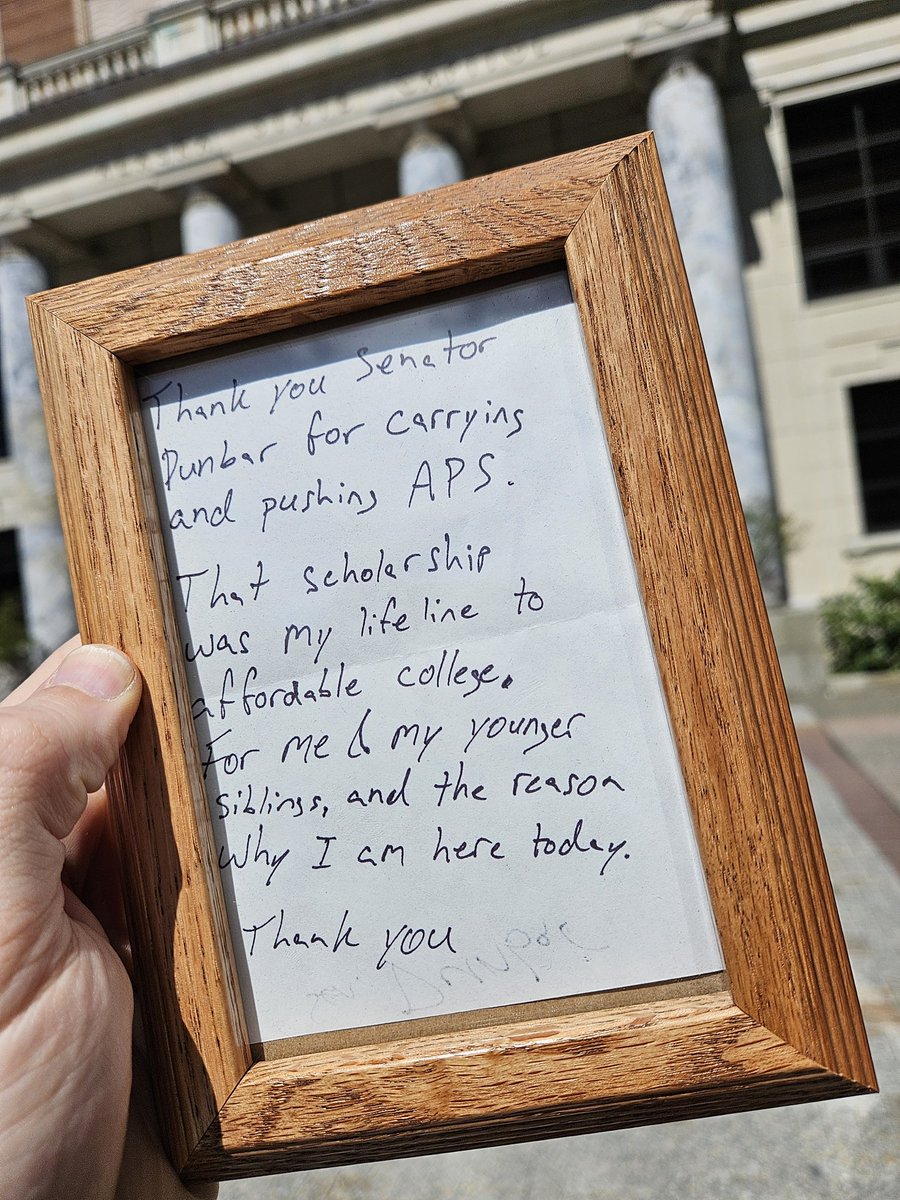 Thank you Senator
Dunbar for carrying
and pushing APS.
That scholarship
was my lifeline to
affordable college.
For me & my younger
siblings, and the reason
why I am here today.
Thank you